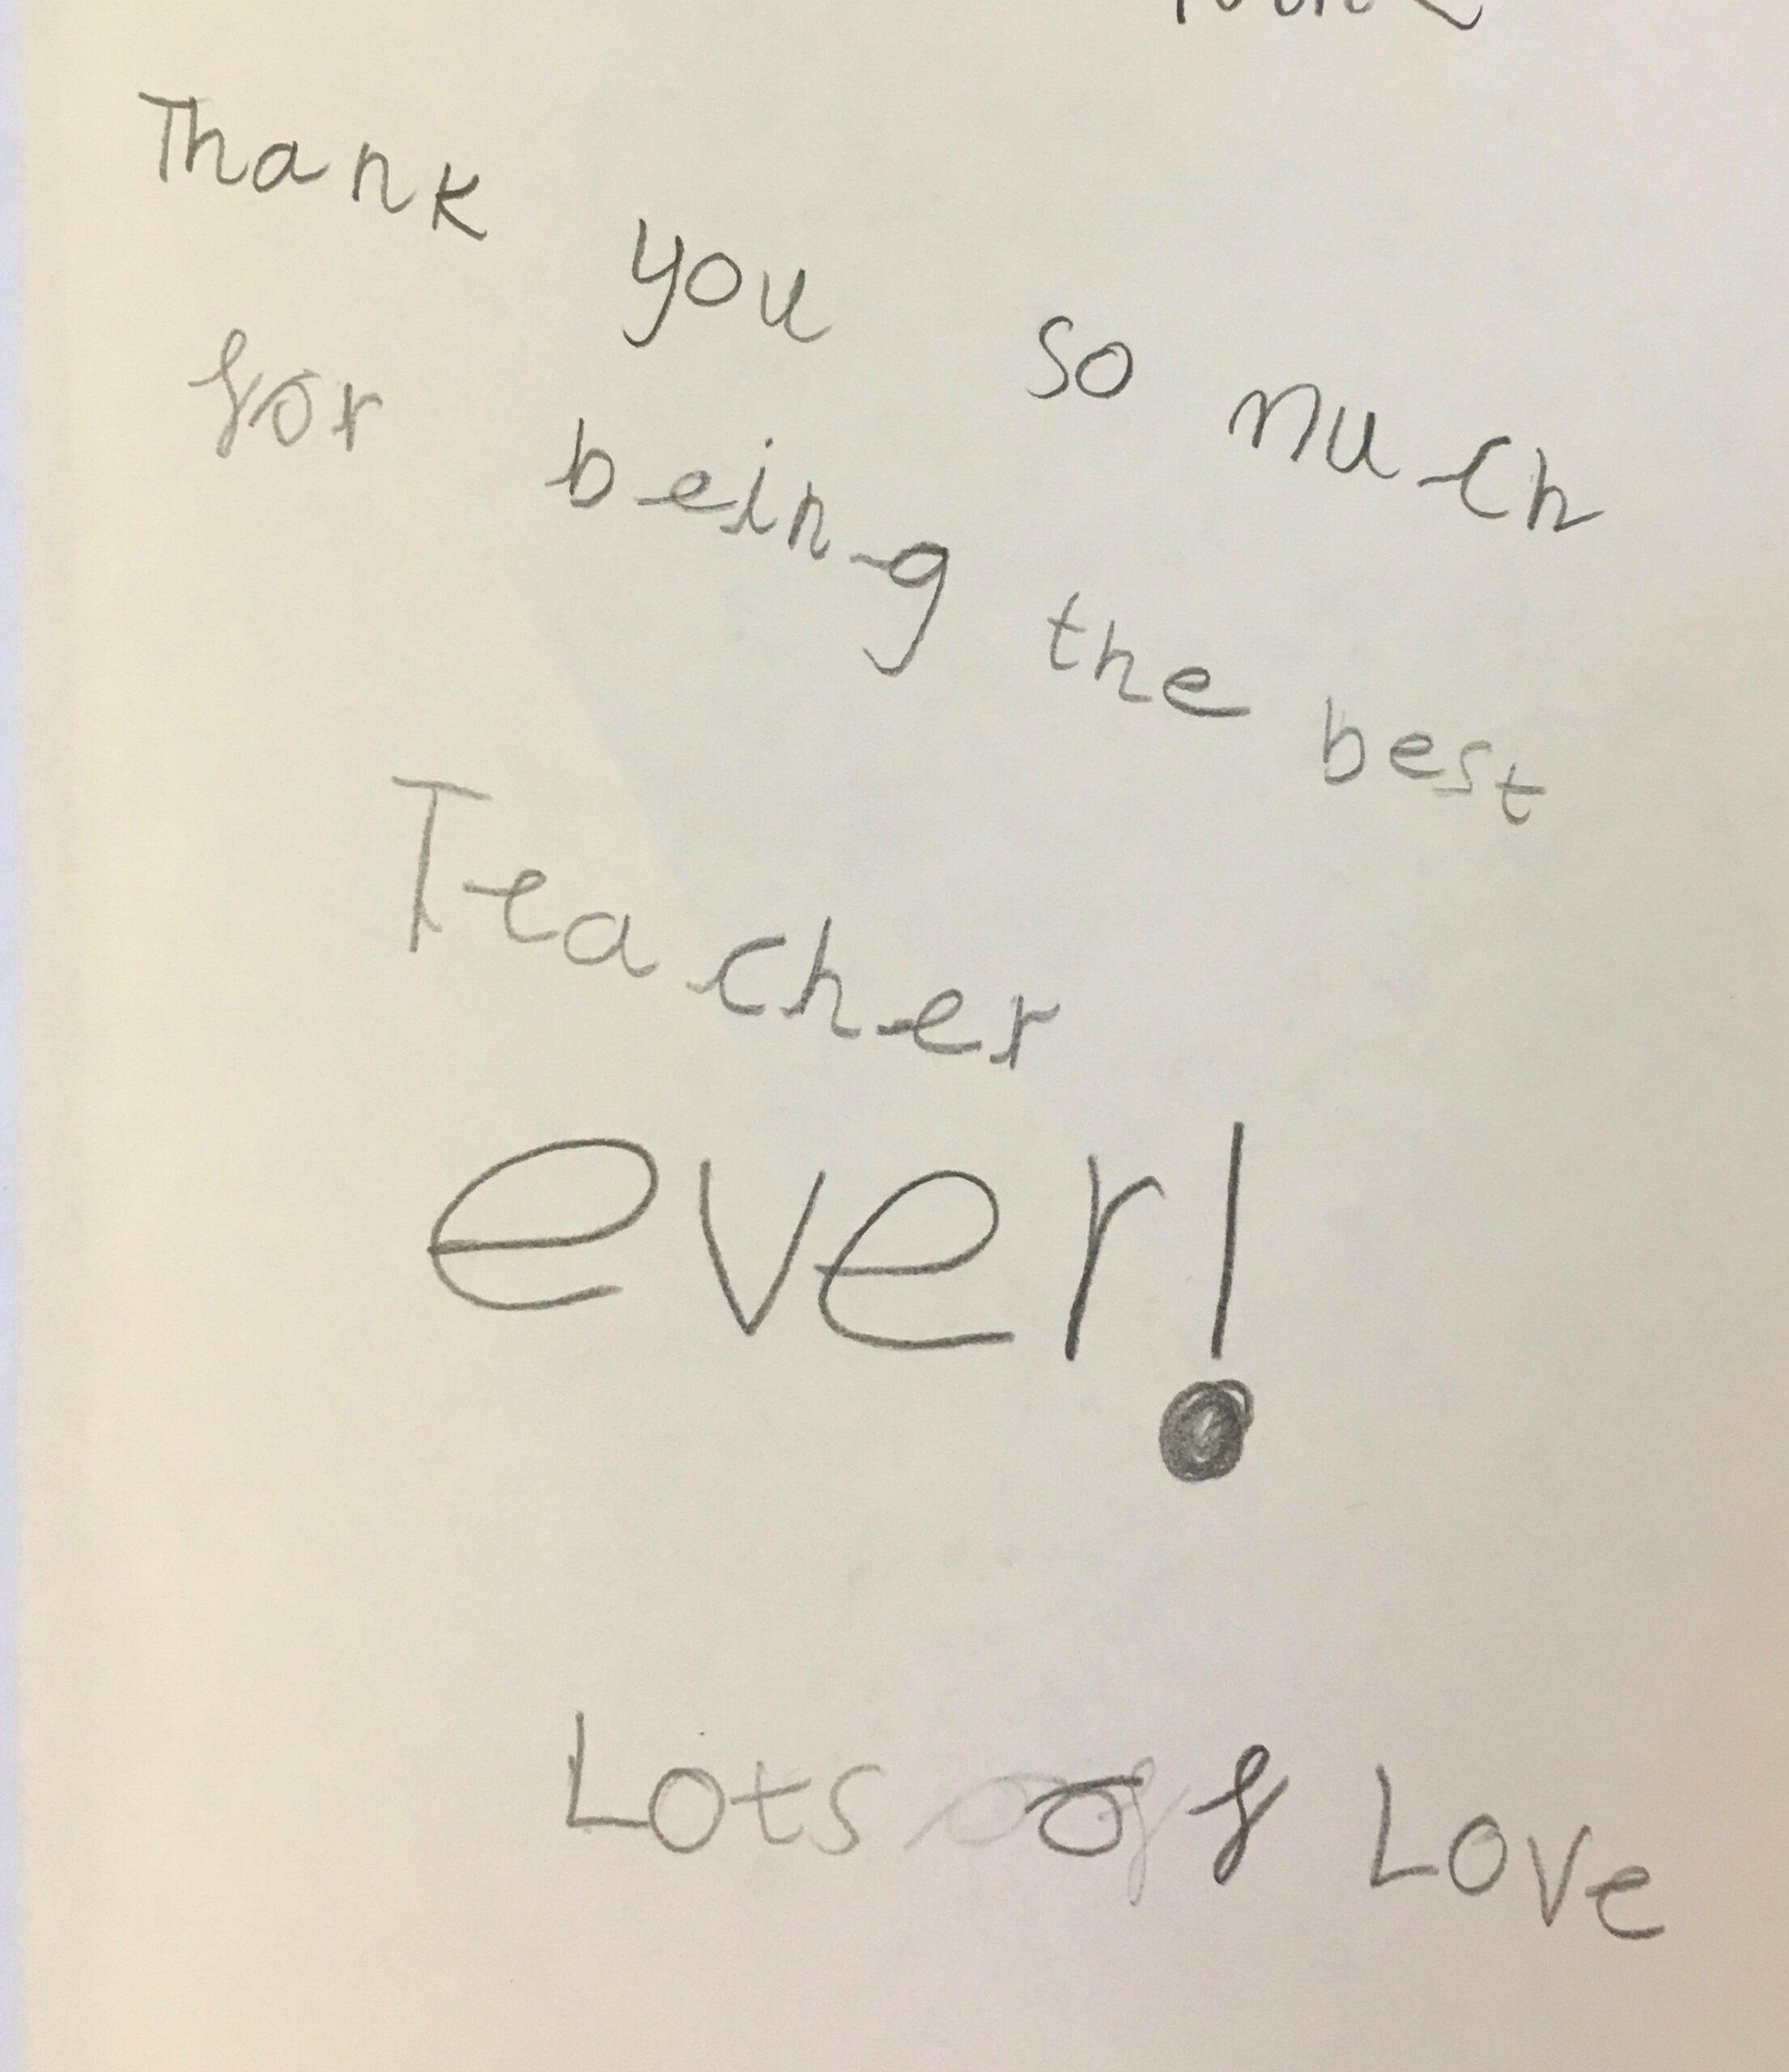 Thank you so much
for being the best
Teacher
ever!
Lots of Love